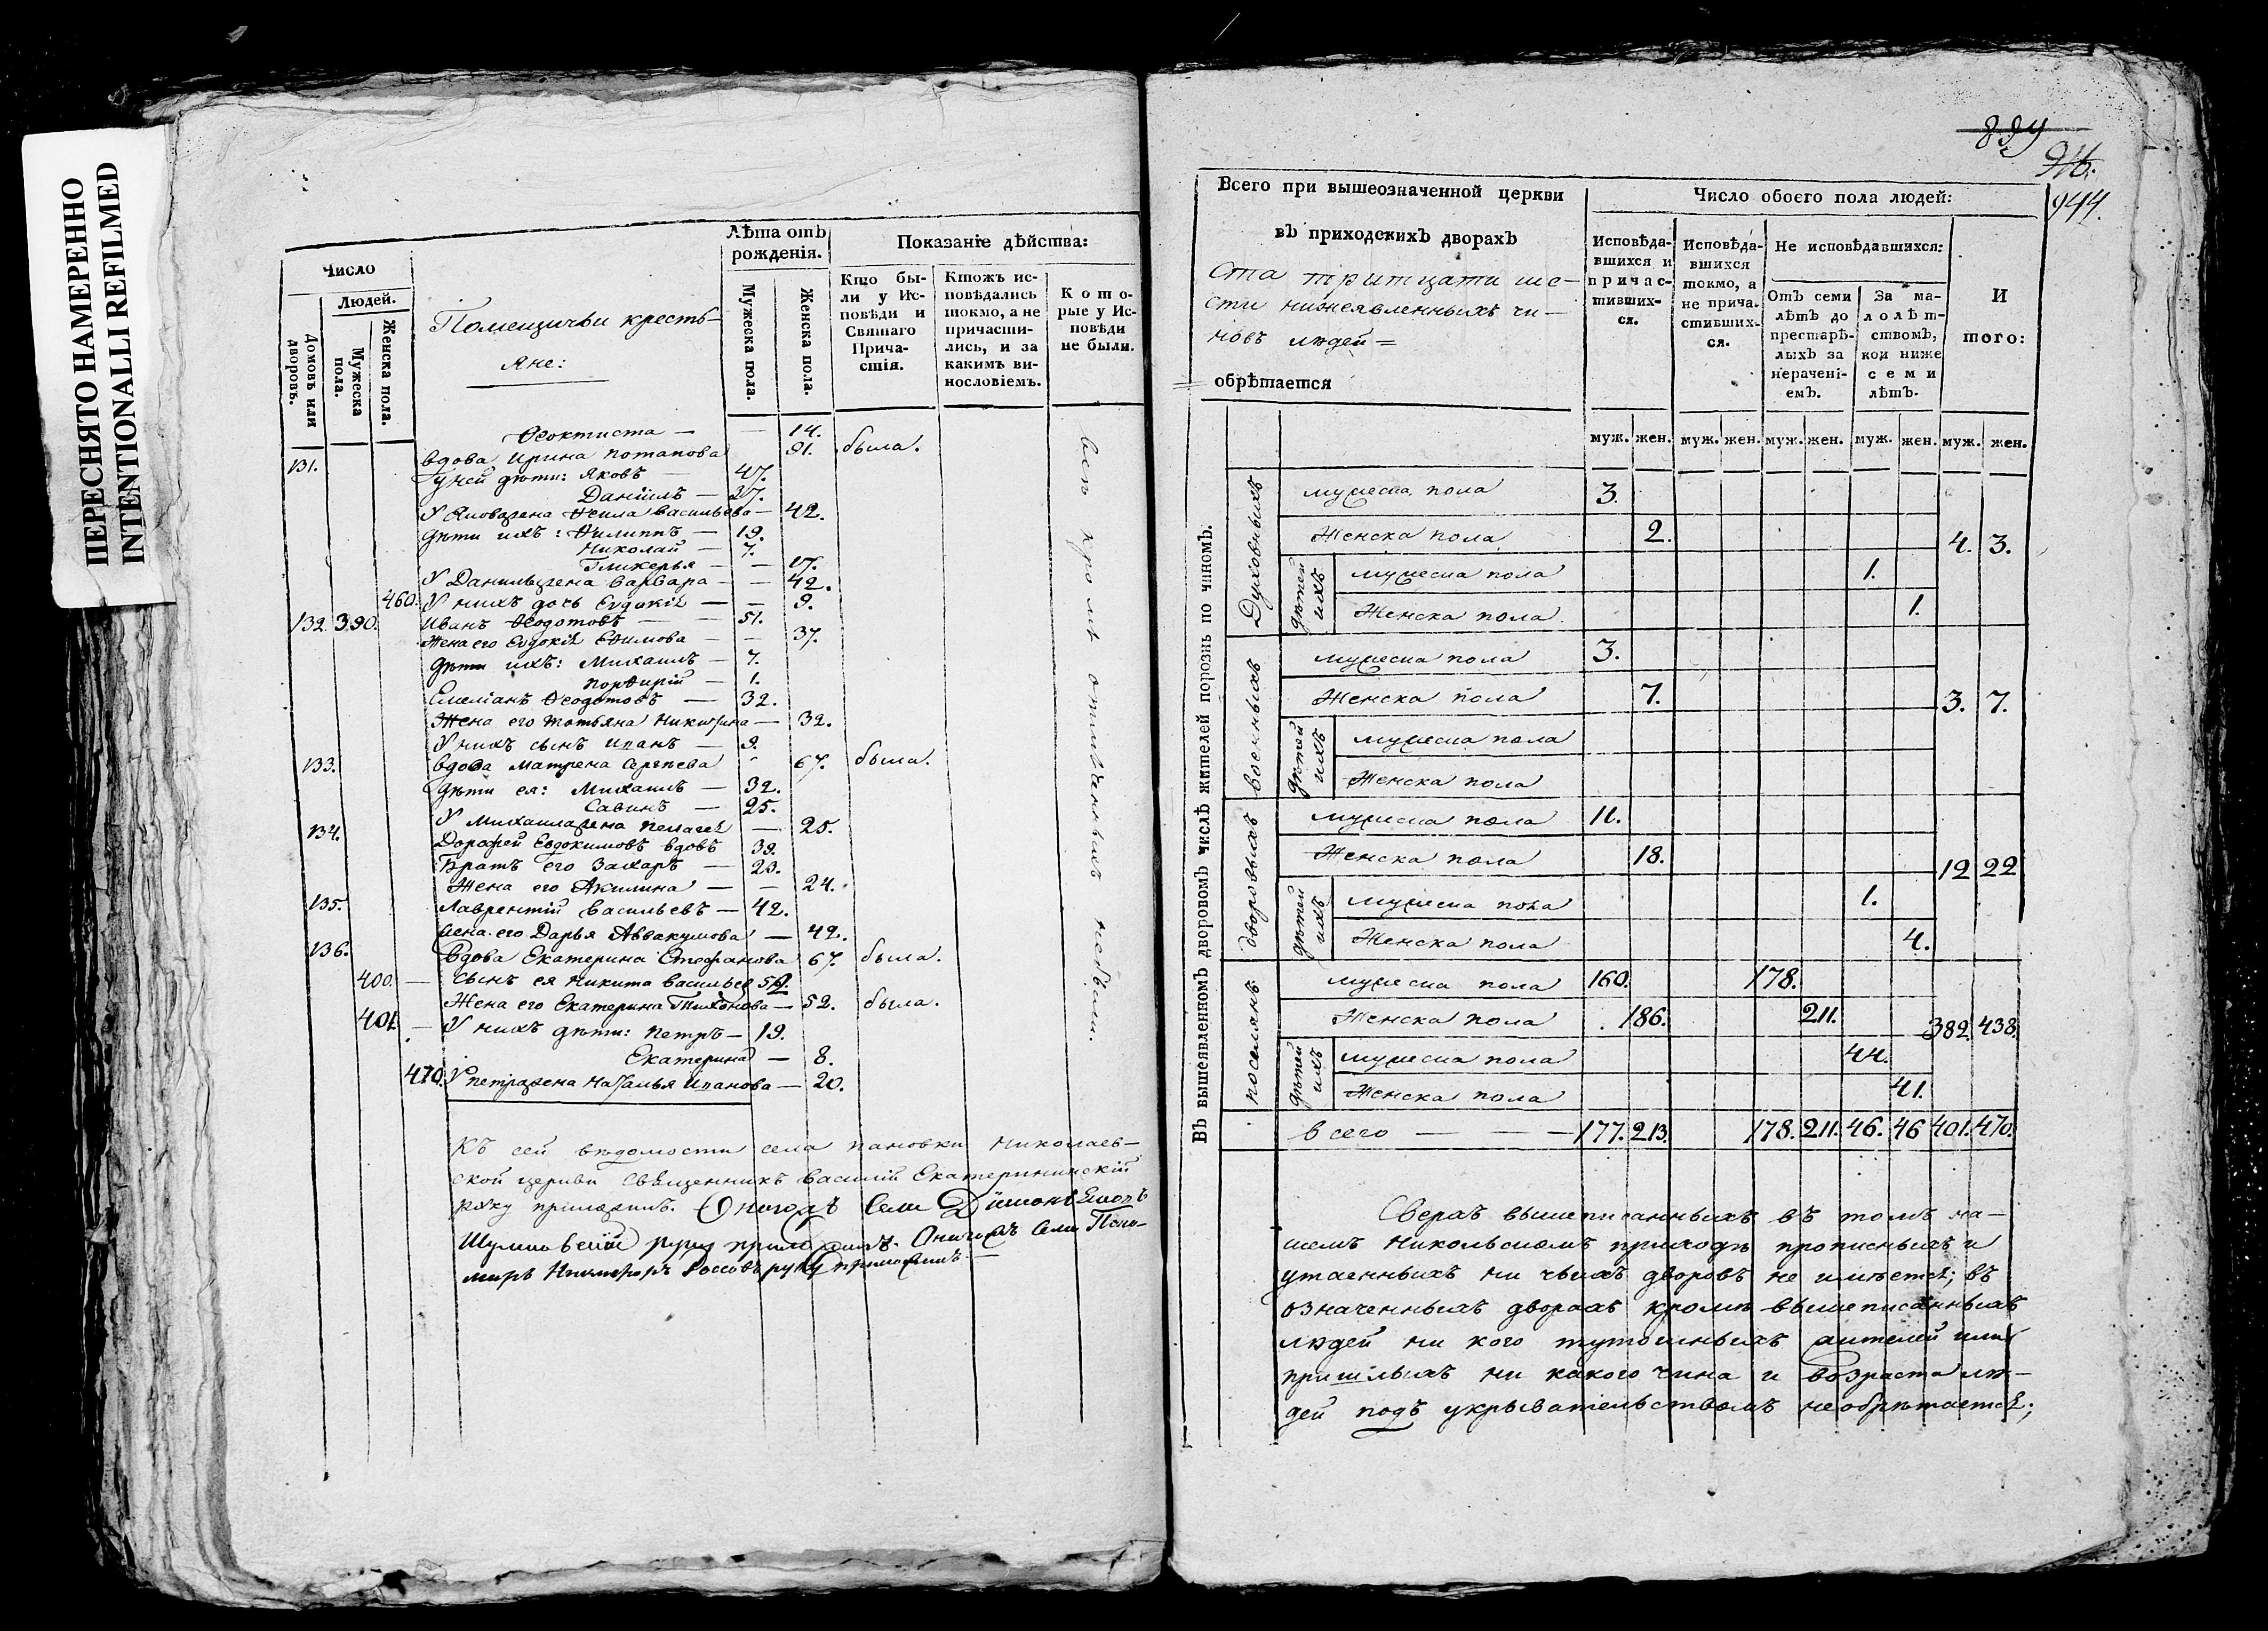 ПЕРЕСНЯТО НАМЕРЕННО
INTENTIONALLI REFILMED
Число
Людей.
Домовъ или дворовъ.
Мужеска пола.
Женска пола.
Помещичьи кресть-
яне:
Лѣта отъ рожденія.
Мужеска пола.
Женска пола.
Показаніе дѣйства:
Кто бы-
ли у Ис-
повѣди и
Святаго
Прича-
стія.
Ктожъ ис-
повѣдались
токмо, а не
причасти-
лись, и за
какимъ ви-
нословіемъ.
Кото-
рые у Ис-
повѣди
не были.
Ѳеоктиста — — 14.
131. вдова Ирина Потапова 91. была.
У ней дѣти: Яковъ — 47.
Даніилъ — 37.
У Якова жена Ѳекла Васильева — 42.
дѣти ихъ: Ѳилиппъ — 19.
Николай — 7.
Гликерья — — 17.
У Данилы жена Варвара — — 42.
460. У нихъ дочь Евдокія — — 9.
132. 390. Иванъ Ѳеодотовъ — — 51.
Жена его Евдокія Ефимова — — 37.
дѣти ихъ: Михаилъ — 7.
Порѳирій — 1.
Емеліанъ Ѳеодотовъ — 32.
Жена его Татьяна Никитина — 32.
У нихъ сынъ Иванъ — 9.
133. вдова Матрена Сергѣева 67. была.
дѣти ея: Михаилъ — 32.
Савинъ — 25.
У Михаила жена Пелагея — 25.
134. Дорофей Евдокимовъ вдовъ 39.
Братъ его Захаръ — 23.
Жена его Акилина — — 24.
135. Лаврентій Васильевъ — 42.
жена его Дарья Аввакумова — 42.
136. Вдова Екатерина Стефанова 67. была.
400. — сынъ ея Никита Васильев 52.
Жена его Екатерина Тихонова — 52. была.
401. — У нихъ дѣти: Петръ — 19.
Екатерина — 8.
470. У Петра жена Наталья Иванова — 20.
всѣ кромѣ отмѣченныхъ небыли.
Къ сей вѣдомости села Пановки Николаев-
ской церкви Священникъ Василій Екатерининскій
руку приложилъ. Оногожъ Села
руку приложилъ. Оногожъ Села Поно-
марь руку приложилъ. —
944.
Всего при вышеозначенной церкви
въ приходскихъ дворахъ
Ста тритцати ше-
сти нижеявленныхъ чи-
новъ людей =
обрѣтается
Число обоего пола людей:
Исповѣда-
вшихся и
причас-
тивших-
ся.
Исповѣда-
вшихся
токмо, а
не прича-
стивших-
ся.
Не исповѣдавшихся:
Отъ семи
лѣтъ до
престарѣ-
лыхъ за
нерачені-
емъ.
За ма-
лолѣт-
ствомъ,
кои ниже
семи
лѣтъ.
И
того:
муж. жен. муж. жен. муж. жен. муж. жен. муж. жен.
Въ вышеявленномъ дворовомъ числѣ жителей порознь по чиномъ.
Духовныхъ
мужеска пола 3.
Женска пола 2. 4. 3.
дѣтей ихъ
мужеска пола 1.
Женска пола 1.
военныхъ
мужеска пола 3.
Женска пола 7. 3. 7.
дѣтей ихъ
мужеска пола
Женска пола
дворовыхъ
мужеска пола 11.
Женска пола 18. 12 22
дѣтей ихъ
мужеска пола 1.
Женска пола 4.
поселянъ
мужеска пола 160. 178.
Женска пола 186. 211. 382. 438.
дѣтей ихъ
мужеска пола 44.
Женска пола 41.
всего — — — 177. 213. 178. 211. 46. 46 401. 470.
Сверхъ вышеписанныхъ въ томъ на-
шемъ Никольскомъ приходѣ прописныхъ и
утаенныхъ ни чьихъ дворовъ не имѣется; въ
означенныхъ дворахъ кромѣ вышеписанныхъ
людей ни кого тутошныхъ жителей или
пришлыхъ ни какого чина и возраста лю-
дей подъ укрывательствомъ необрѣтается;